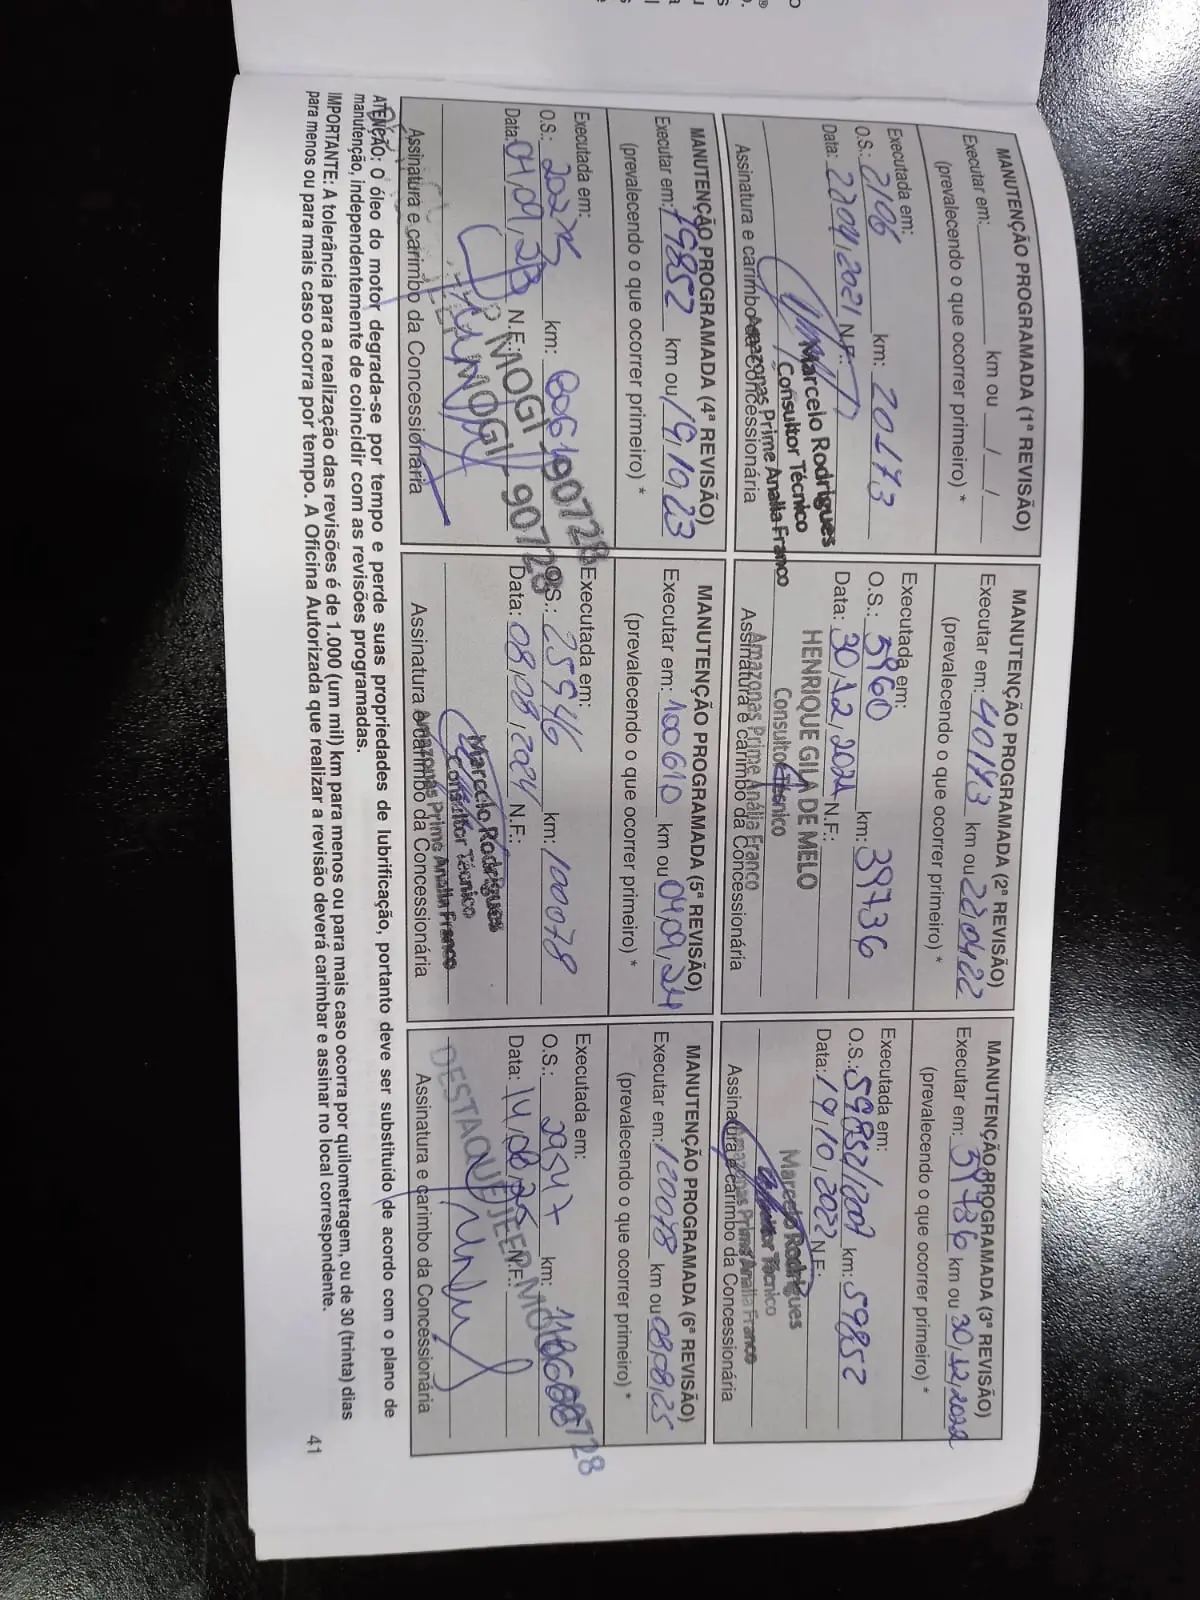 MANUTENÇÃO PROGRAMADA (1ª REVISÃO)
Executar em: km ou / /
(prevalecendo o que ocorrer primeiro) *
Executada em:
O.S.: 2106 km: 20173
Data: 22/04/2021 N.F.:
Marcelo Rodrigues
Consultor Técnico
Amazonas Prime Analia Franco
Assinatura e carimbo da Concessionária
MANUTENÇÃO PROGRAMADA (2ª REVISÃO)
Executar em: 40173 km ou 22/04/22
(prevalecendo o que ocorrer primeiro) *
Executada em:
O.S.: 5960 km: 39736
Data: 30/12/2021 N.F.:
HENRIQUE GILA DE MELO
Consultor Técnico
Amazonas Prime Anália Franco
Assinatura e carimbo da Concessionária
MANUTENÇÃO PROGRAMADA (3ª REVISÃO)
Executar em: 59736 km ou 30/12/2022
(prevalecendo o que ocorrer primeiro) *
Executada em:
O.S.: km: 59852
Data: 19/10/2022 N.F.:
Marcelo Rodrigues
Consultor Técnico
Amazonas Prime Analia Franco
Assinatura e carimbo da Concessionária
MANUTENÇÃO PROGRAMADA (4ª REVISÃO)
Executar em: 79852 km ou 19/10/23
(prevalecendo o que ocorrer primeiro) *
Executada em:
O.S.: 20275 km:
Data: 04/09/23 N.F.:
MOGI 90728
MOGI 90728
Assinatura e carimbo da Concessionária
MANUTENÇÃO PROGRAMADA (5ª REVISÃO)
Executar em: 100610 km ou 04/09/24
(prevalecendo o que ocorrer primeiro) *
Executada em:
O.S.: 25946 km: 100078
Data: 08/08/2024 N.F.:
Marcelo Rodrigues
Consultor Técnico
Amazonas Prime Analia Franco
Assinatura e carimbo da Concessionária
MANUTENÇÃO PROGRAMADA (6ª REVISÃO)
Executar em: 120078 km ou 08/08/25
(prevalecendo o que ocorrer primeiro) *
Executada em:
O.S.: 29547 km:
Data: 14/08/25 N.F.:
DESTAQUE JEEP
Assinatura e carimbo da Concessionária
ATENÇÃO: O óleo do motor degrada-se por tempo e perde suas propriedades de lubrificação, portanto deve ser substituído de acordo com o plano de
manutenção, independentemente de coincidir com as revisões programadas.
IMPORTANTE: A tolerância para a realização das revisões é de 1.000 (um mil) km para menos ou para mais caso ocorra por quilometragem, ou de 30 (trinta) dias
para menos ou para mais caso ocorra por tempo. A Oficina Autorizada que realizar a revisão deverá carimbar e assinar no local correspondente.
41